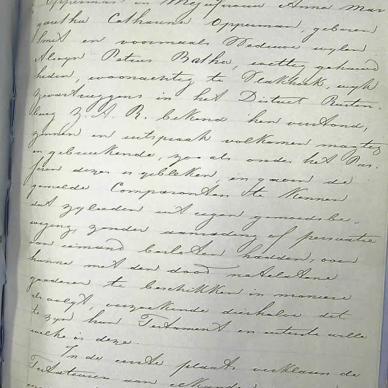 Opperman en Mejufvrouw Anna Mar
garetha Catharina Opperman, geboren
Smit en voormaals Weduwe wylen
Petrus Botha, wettig gehuwd
heden, woonachtig te Vlakhoek, wyk
Zwartruggens in het District Rusten
burg Z. A. R. bekend hun verstand,
zinnen en uitspraak volkomen magtig
en gebruikende, zoo als onder het Pas-
seren dezes is gebleken, en gaven de
gemelde Comparanten te kennen
dat zylieden uit eigen gemoedsbe
weging, zonder aanrading of persuatie
van iemand besloten hadden, over
hunne met den dood natelatene
goederen te beschikken in maniere
als volgt, verzoekende derhalve dit
te zyn hun Testament en uiterste wille
welke is deze
In de eerste plaats verklaren de
Testateuren aan elkander